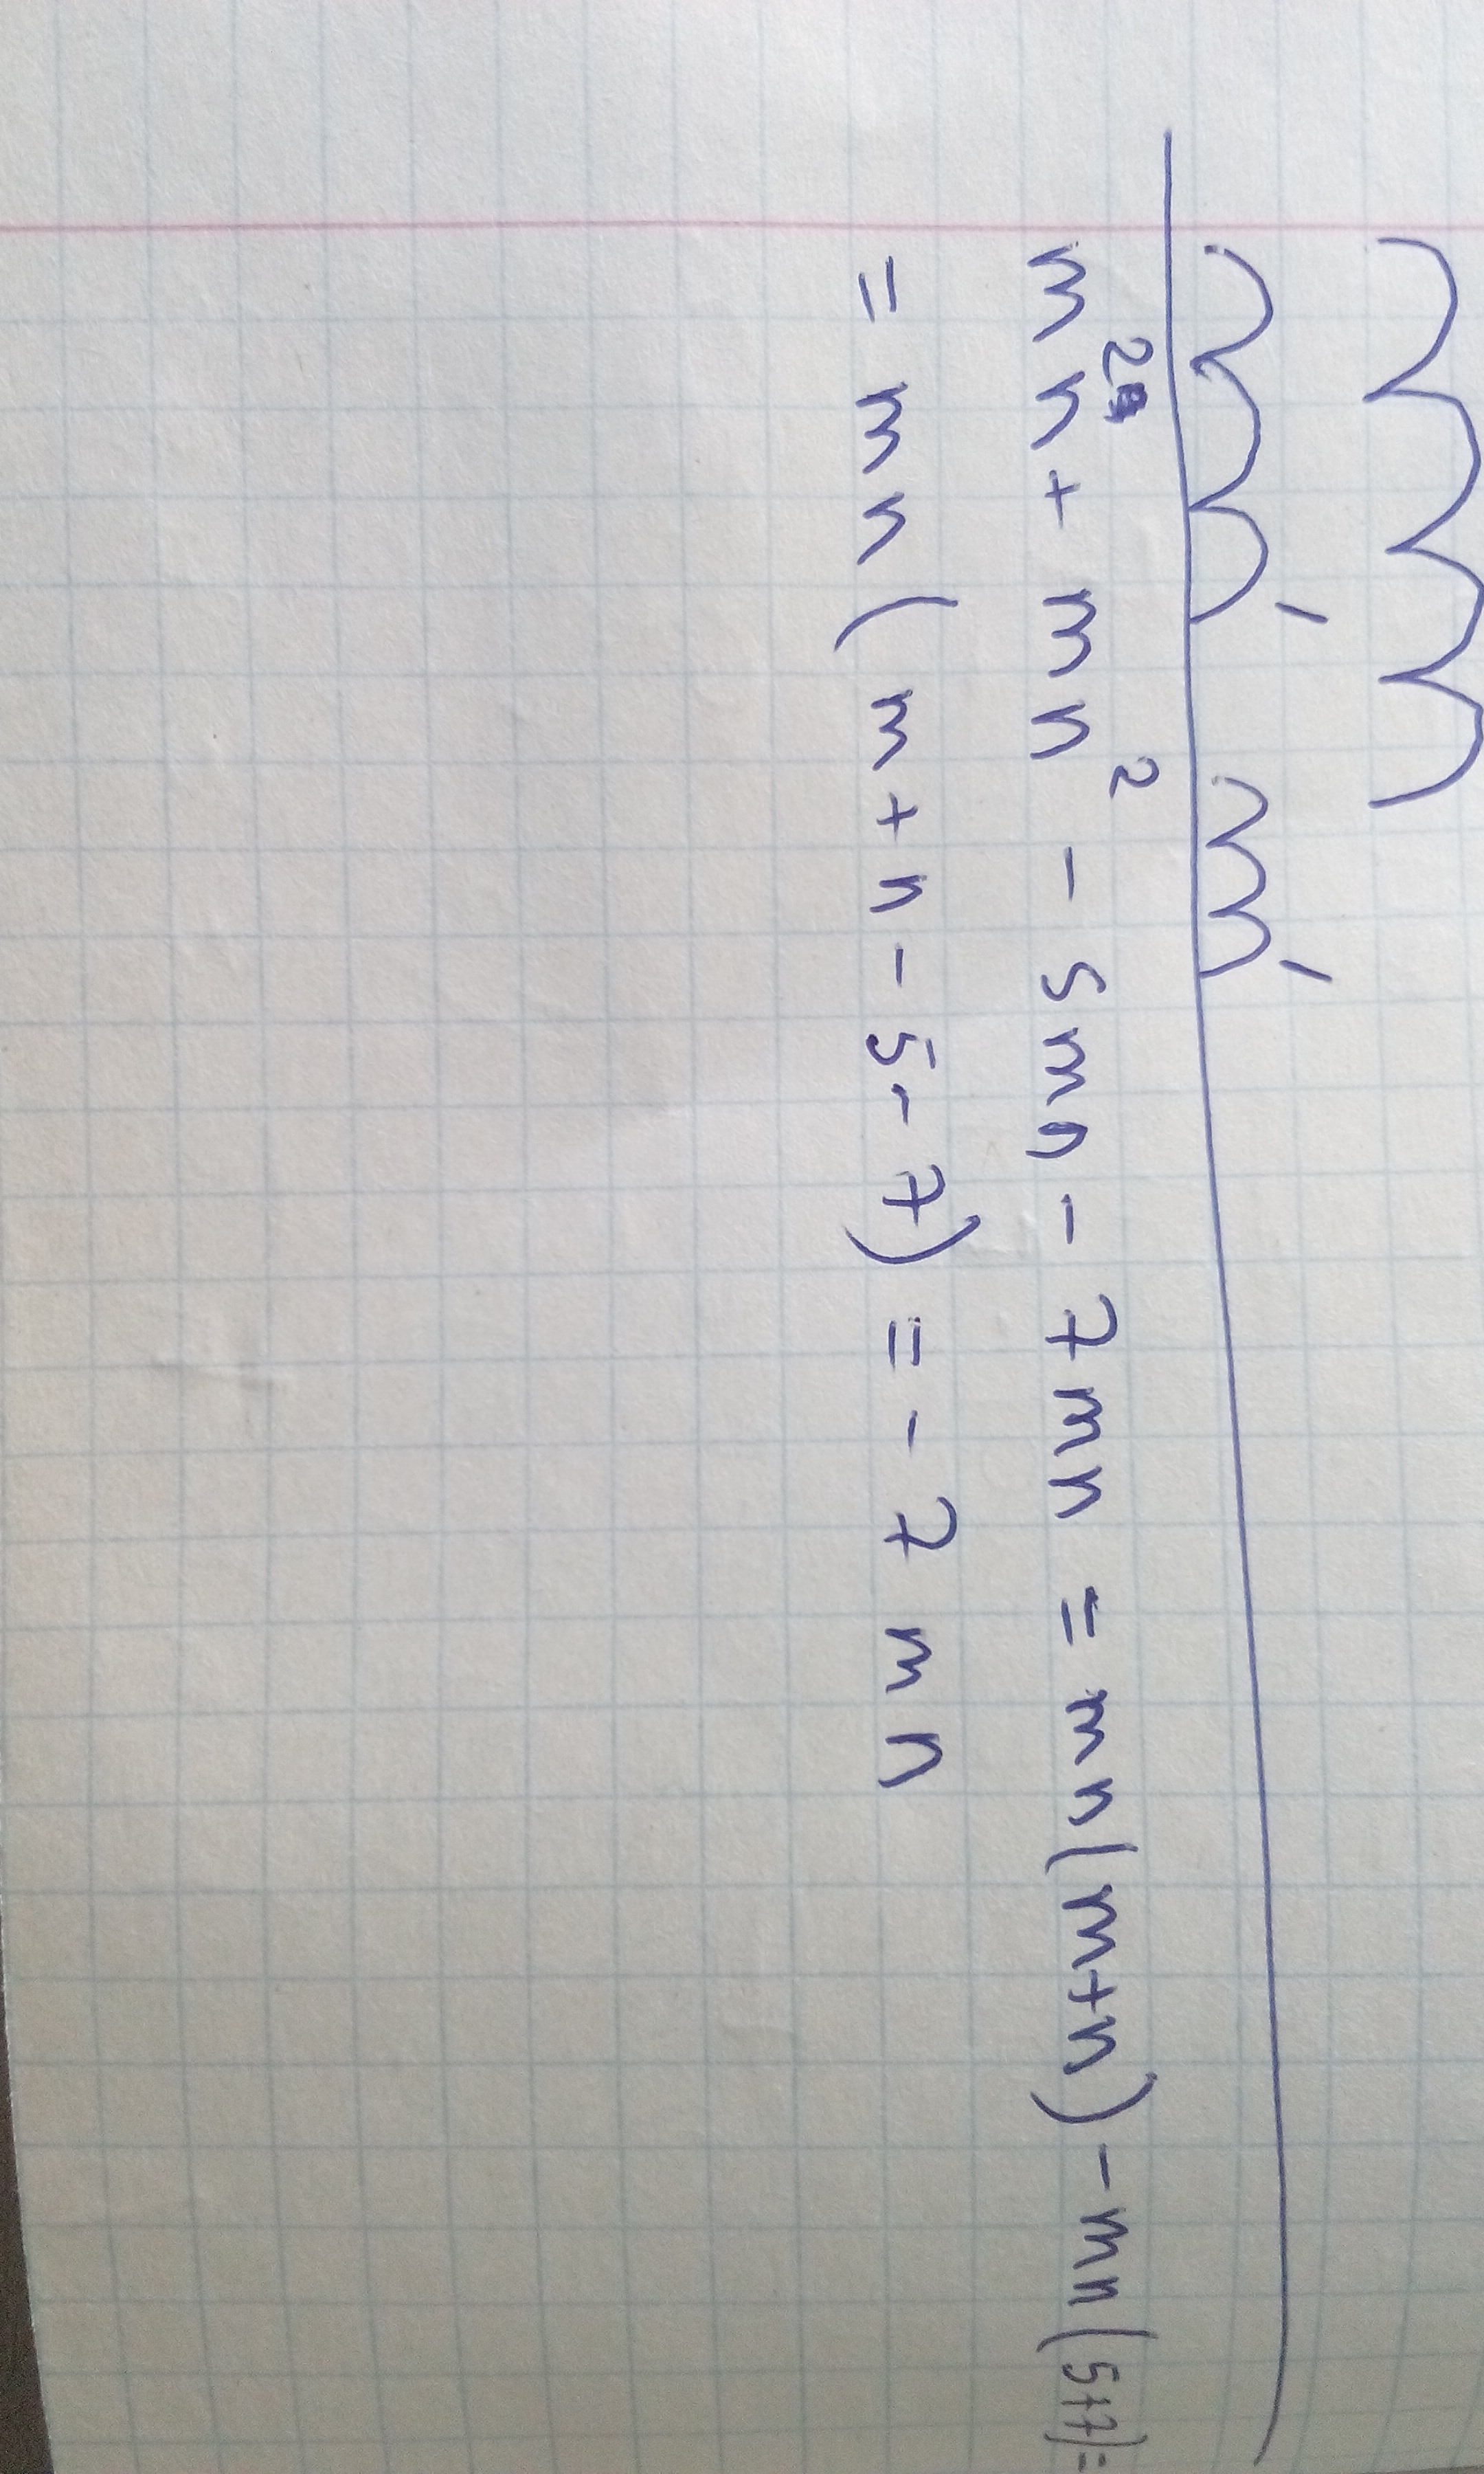 m²n + mn² - 5mn - 7mn = mn(m+n) - mn(5+7) =
= mn(m+n-5-7) = -7mn